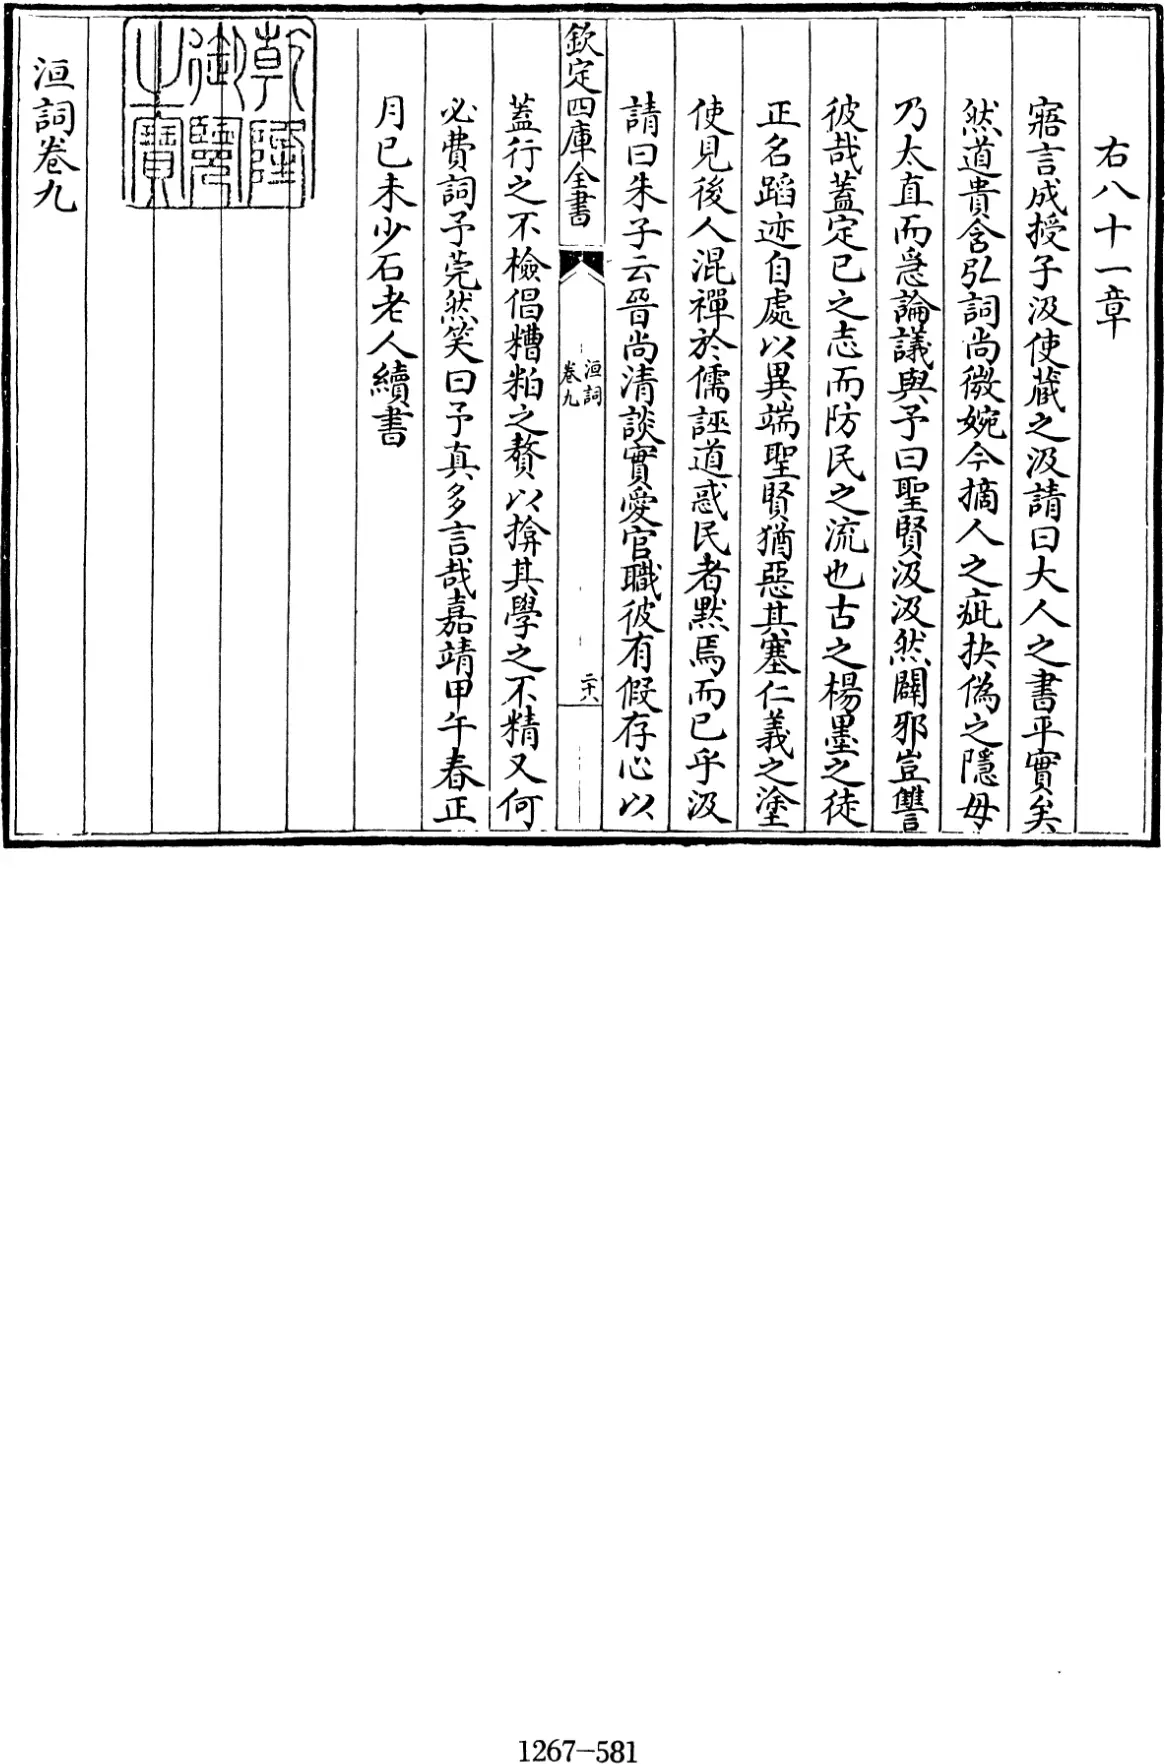 右八十一章
寤言成授子汲使藏之汲請曰大人之書平實矣
然道貴含弘詞尚微婉今摘人之疵抉偽之隱毋
乃太直而急論議與予曰聖賢汲汲然闢邪豈讐
彼哉蓋定已之志而防民之流也古之楊墨之徒
正名蹈迹自處以異端聖賢猶惡其塞仁義之塗
使見後人混禪於儒誣道惑民者黙焉而已乎汲
請曰朱子云晉尚清談實愛官職彼有假存心以
欽定四庫全書
洹詞
卷九
二十八
蓋行之不檢倡糟粕之贅以揜其學之不精又何
必費詞予莞然笑曰予真多言哉嘉靖甲午春正
月已未少石老人續書
乾隆
御覽
之寶
洹詞卷九
1267-581